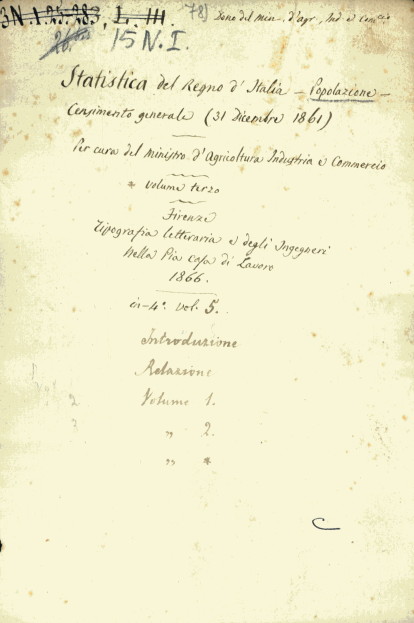 3N.1.25.283, L. III.
78) Dono del Min. d'Agr., Ind. e Com.cio
15 N. I.
Statistica del Regno d'Italia – Popolazione –
Censimento generale (31 dicembre 1861)
Per cura del Ministro d'Agricoltura Industria e Commercio
* volume terzo
Firenze
Tipografia letteraria e degli Ingegneri
nella Pia casa di Lavoro
1866.
in-4°. vol. 5.
Introduzione
Relazione
Volume 1.
2 „ 2.
3 „ *
C